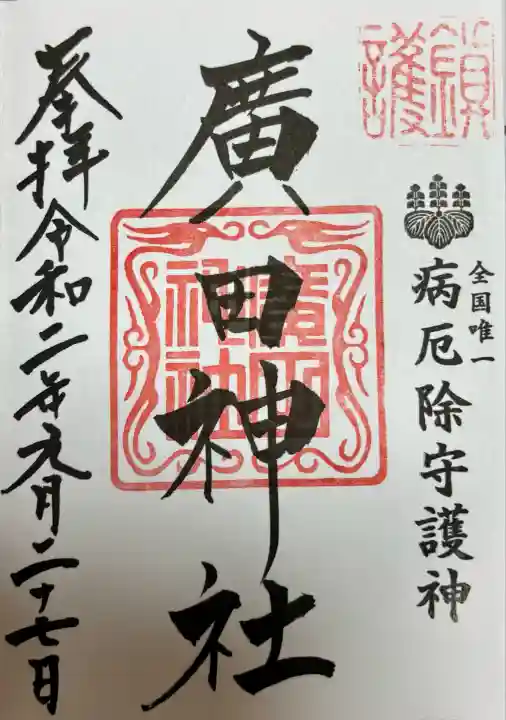 鎮護
全国唯一
病厄除守護神
廣田神社
廣田神社
奉拝 令和二年元月二十七日